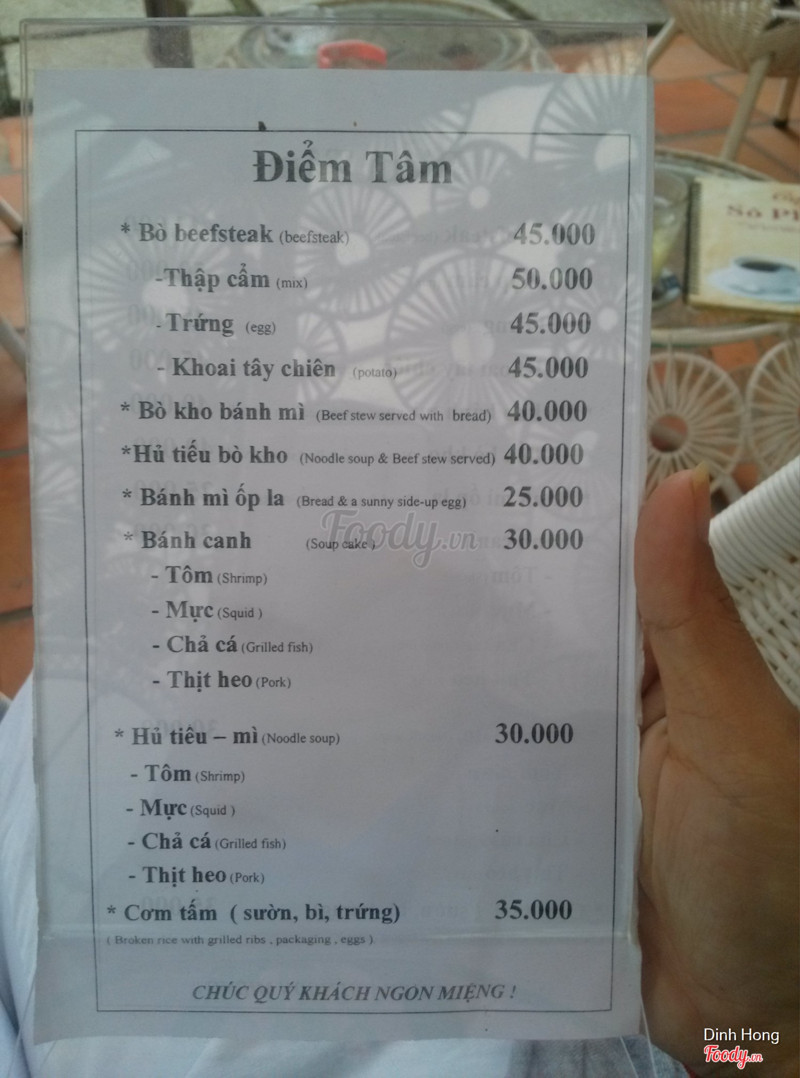 Điểm Tâm
* Bò beefsteak (beefsteak) 45.000
-Thập cẩm (mix) 50.000
- Trứng (egg) 45.000
- Khoai tây chiên (potato) 45.000
* Bò kho bánh mì (Beef stew served with bread) 40.000
*Hủ tiếu bò kho (Noodle soup & Beef stew served) 40.000
* Bánh mì ốp la (Bread & a sunny side-up egg) 25.000
* Bánh canh (Soup cake ) 30.000
- Tôm (Shrimp)
- Mực (Squid )
- Chả cá (Grilled fish)
- Thịt heo (Pork)
* Hủ tiêu – mì (Noodle soup) 30.000
- Tôm (Shrimp)
- Mực (Squid )
- Chả cá (Grilled fish)
- Thịt heo (Pork)
* Cơm tấm ( sườn, bì, trứng) 35.000
( Broken rice with grilled ribs , packaging , eggs )
CHÚC QUÝ KHÁCH NGON MIỆNG !
Foody.vn
Dinh Hong
Foody.vn